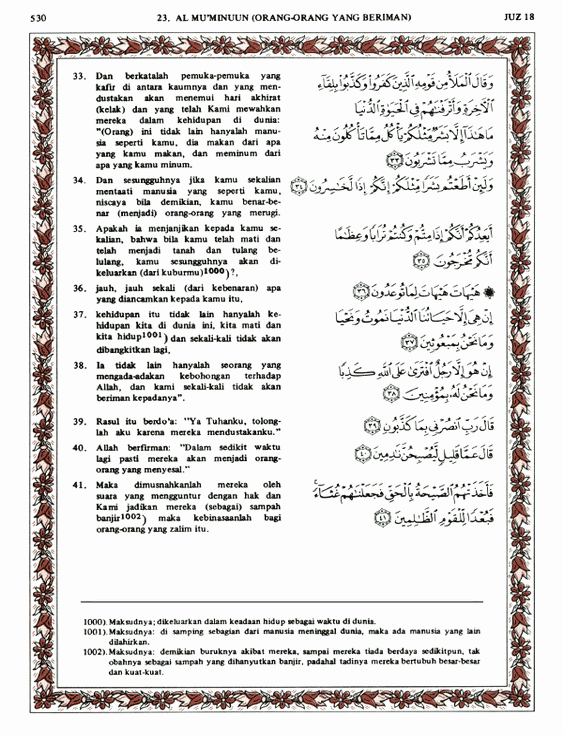 530
23. AL MU'MINUUN (ORANG-ORANG YANG BERIMAN)
JUZ 18
33. Dan berkatalah pemuka-pemuka yang
kafir di antara kaumnya dan yang men-
dustakan akan menemui hari akhirat
(kelak) dan yang telah Kami mewahkan
mereka dalam kehidupan di dunia:
"(Orang) ini tidak lain hanyalah manu-
sia seperti kamu, dia makan dari apa
yang kamu makan, dan meminum dari
apa yang kamu minum.
وَقَالَ ٱلْمَلَأُ مِن قَوْمِهِ ٱلَّذِينَ كَفَرُوا۟ وَكَذَّبُوا۟ بِلِقَآءِ
ٱلْءَاخِرَةِ وَأَتْرَفْنَٰهُمْ فِى ٱلْحَيَوٰةِ ٱلدُّنْيَا
مَا هَٰذَآ إِلَّا بَشَرٌ مِّثْلُكُمْ يَأْكُلُ مِمَّا تَأْكُلُونَ مِنْهُ
وَيَشْرَبُ مِمَّا تَشْرَبُونَ ٣٣
34. Dan sesungguhnya jika kamu sekalian
mentaati manusia yang seperti kamu,
niscaya bila demikian, kamu benar-be-
nar (menjadi) orang-orang yang merugi.
وَلَئِنْ أَطَعْتُم بَشَرًا مِّثْلَكُمْ إِنَّكُمْ إِذًا لَّخَٰسِرُونَ ٣٤
35. Apakah ia menjanjikan kepada kamu se-
kalian, bahwa bila kamu telah mati dan
telah menjadi tanah dan tulang be-
lulang, kamu sesungguhnya akan di-
keluarkan (dari kuburmu)1000)?,
أَيَعِدُكُمْ أَنَّكُمْ إِذَا مِتُّمْ وَكُنتُمْ تُرَابًا وَعِظَٰمًا
أَنَّكُم مُّخْرَجُونَ ٣٥
36. jauh, jauh sekali (dari kebenaran) apa
yang diancamkan kepada kamu itu,
هَيْهَاتَ هَيْهَاتَ لِمَا تُوعَدُونَ ٣٦
37. kehidupan itu tidak lain hanyalah ke-
hidupan kita di dunia ini, kita mati dan
kita hidup1001) dan sekali-kali tidak akan
dibangkitkan lagi,
إِنْ هِىَ إِلَّا حَيَاتُنَا ٱلدُّنْيَا نَمُوتُ وَنَحْيَا
وَمَا نَحْنُ بِمَبْعُوثِينَ ٣٧
38. Ia tidak lain hanyalah seorang yang
mengada-adakan kebohongan terhadap
Allah, dan kami sekali-kali tidak akan
beriman kepadanya".
إِنْ هُوَ إِلَّا رَجُلٌ ٱفْتَرَىٰ عَلَى ٱللَّهِ كَذِبًا
وَمَا نَحْنُ لَهُۥ بِمُؤْمِنِينَ ٣٨
39. Rasul itu berdo'a: "Ya Tuhanku, tolong-
lah aku karena mereka mendustakanku."
قَالَ رَبِّ ٱنصُرْنِى بِمَا كَذَّبُونِ ٣٩
40. Allah berfirman: "Dalam sedikit waktu
lagi pasti mereka akan menjadi orang-
orang yang menyesal."
قَالَ عَمَّا قَلِيلٍ لَّيُصْبِحُنَّ نَٰدِمِينَ ٤٠
41. Maka dimusnahkanlah mereka oleh
suara yang mengguntur dengan hak dan
Kami jadikan mereka (sebagai) sampah
banjir1002) maka kebinasaanlah bagi
orang-orang yang zalim itu.
فَأَخَذَتْهُمُ ٱلصَّيْحَةُ بِٱلْحَقِّ فَجَعَلْنَٰهُمْ غُثَآءً
فَبُعْدًا لِّلْقَوْمِ ٱلظَّٰلِمِينَ ٤١
1000). Maksudnya; dikeluarkan dalam keadaan hidup sebagai waktu di dunia.
1001). Maksudnya: di samping sebagian dari manusia meninggal dunia, maka ada manusia yang lain
dilahirkan.
1002). Maksudnya: demikian buruknya akibat mereka, sampai mereka tiada berdaya sedikitpun, tak
obahnya sebagai sampah yang dihanyutkan banjir, padahal tadinya mereka bertubuh besar-besar
dan kuat-kuat.